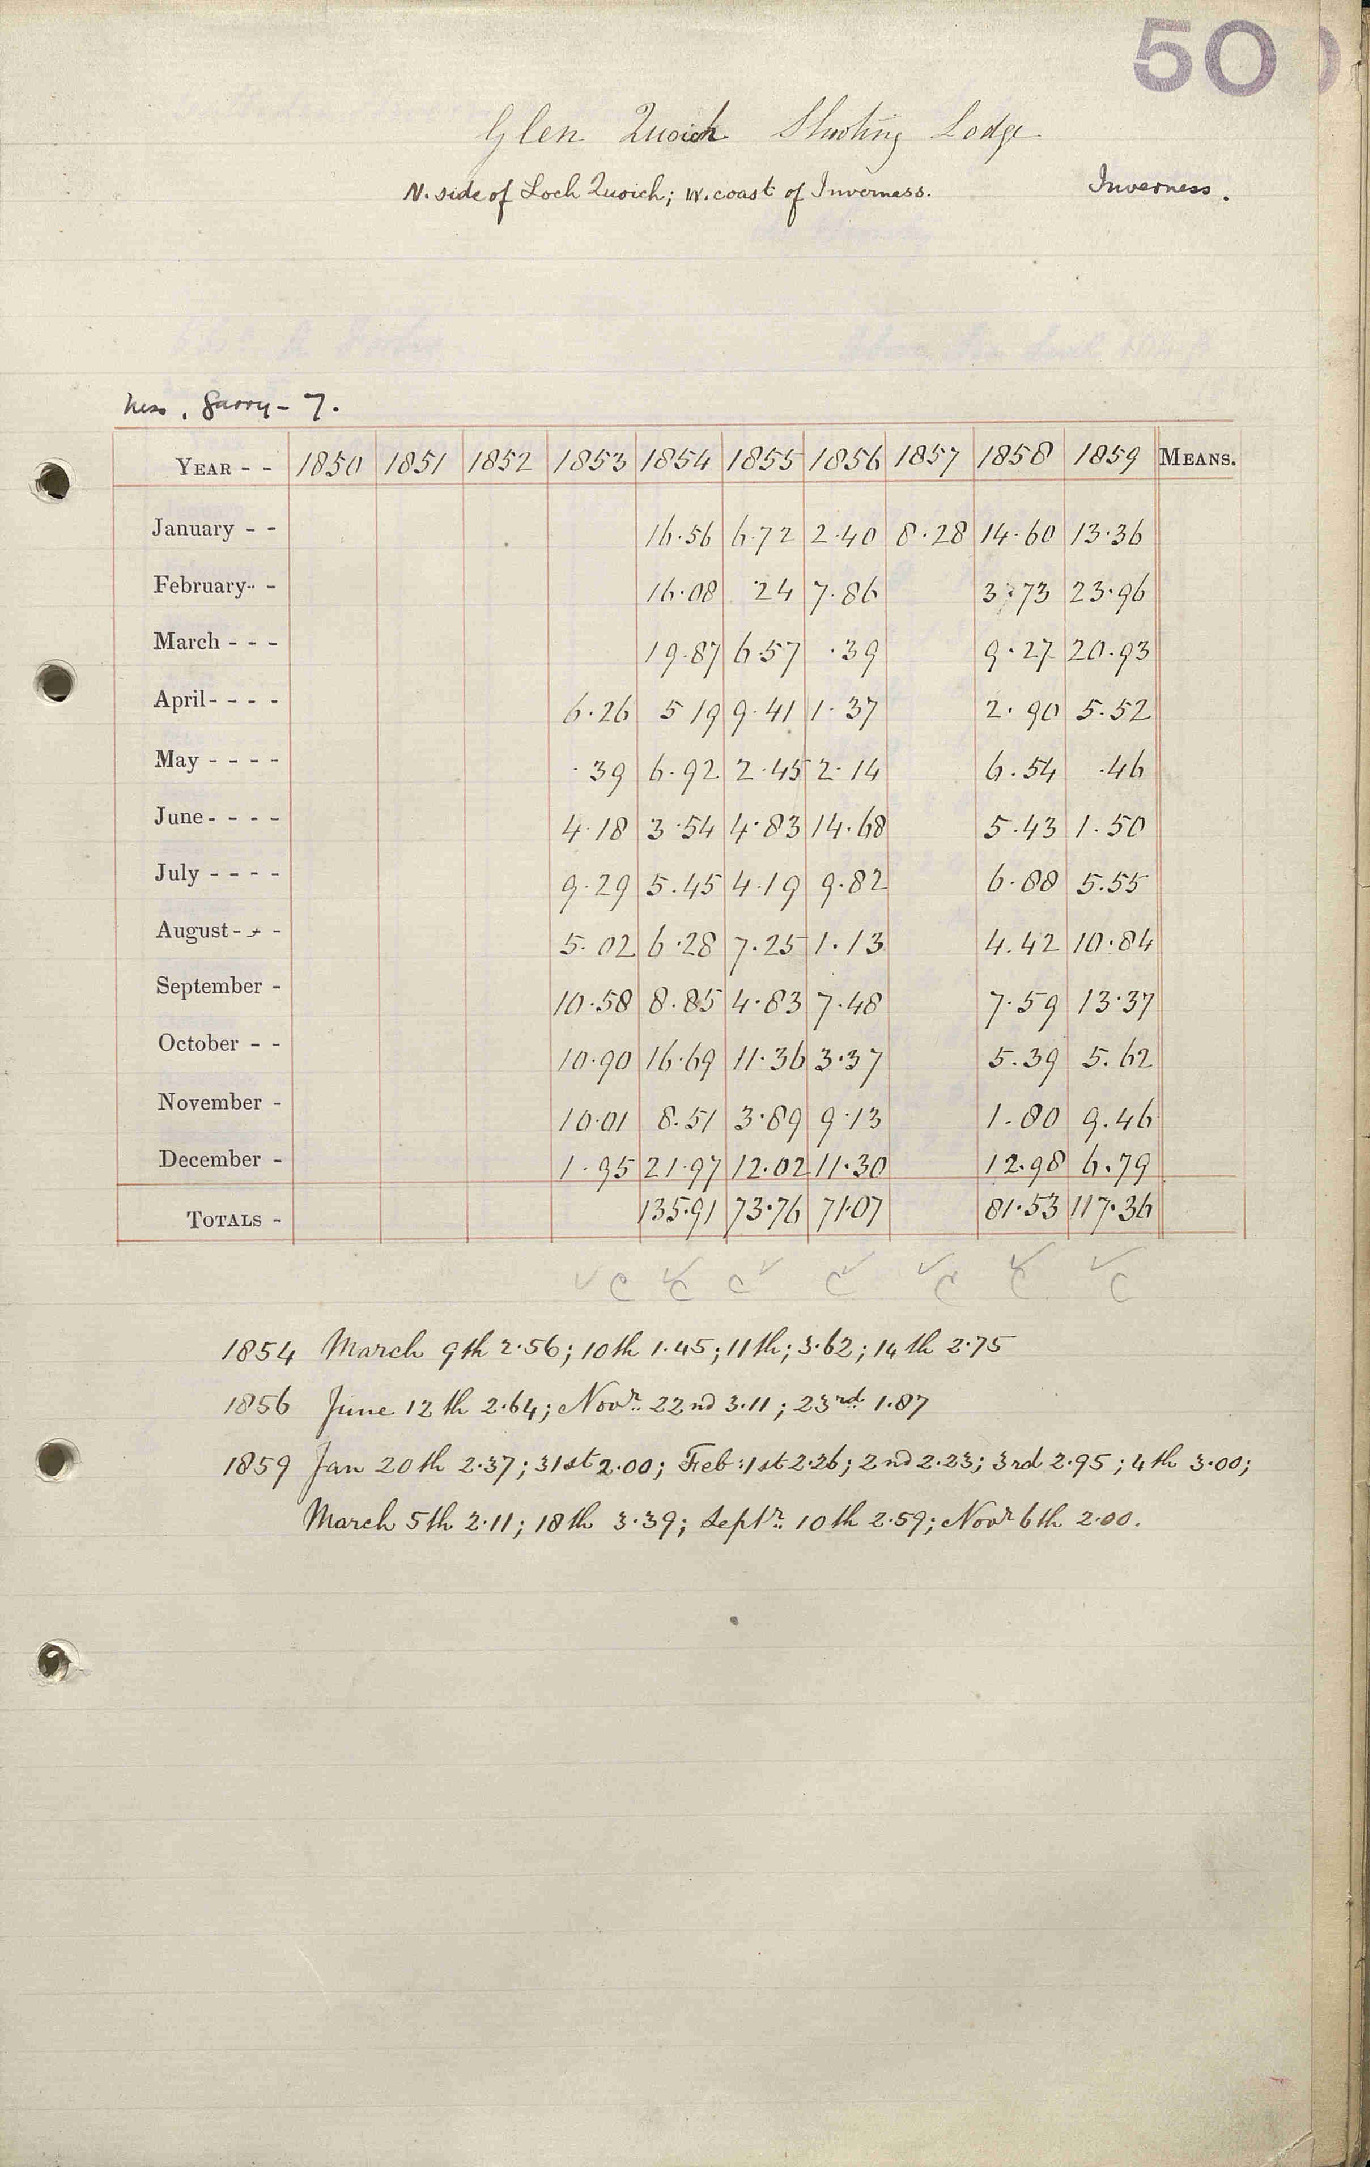 50
Glen Quoich Shooting Lodge
N. side of Loch Quoich; W. coast of Inverness. Inverness.
Ness, Garry - 7.
YEAR - - 1850 1851 1852 1853 1854 1855 1856 1857 1858 1859 MEANS.
January - - 16.56 6.72 2.40 8.28 14.60 13.36
February - - 16.08 24 7.86 3.73 23.96
March - - - 19.87 6.57 .39 9.27 20.93
April - - - - 6.26 5 19 9.41 1.37 2.90 5.52
May - - - - .39 6.92 2.45 2.14 6.54 .46
June - - - - 4.18 3.54 4.83 14.68 5.43 1.50
July - - - - 9.29 5.45 4.19 9.82 6.88 5.55
August - - - 5.02 6.28 7.25 1.13 4.42 10.84
September - 10.58 8.85 4.83 7.48 7.59 13.37
October - - 10.90 16.69 11.36 3.37 5.39 5.62
November - 10.01 8.51 3.89 9.13 1.80 9.46
December - 1.95 21.97 12.02 11.30 12.98 6.79
TOTALS - 135.91 73.76 71.07 81.53 117.36
✓ C ✓ C C ✓ C ✓ ✓ C ✓ C ✓ C
1854 March 9th 2.56; 10th 1.45; 11th; 3.62; 14th 2.75
1856 June 12th 2.64; Novr. 22nd 3.11; 23rd. 1.87
1859 Jan 20th 2.37; 31st 2.00; Feb: 1st 2.26; 2nd 2.23; 3rd 2.95; 4th 3.00;
March 5th 2.11; 18th 3.39; Septr. 10th 2.59; Novr 6th 2.00.